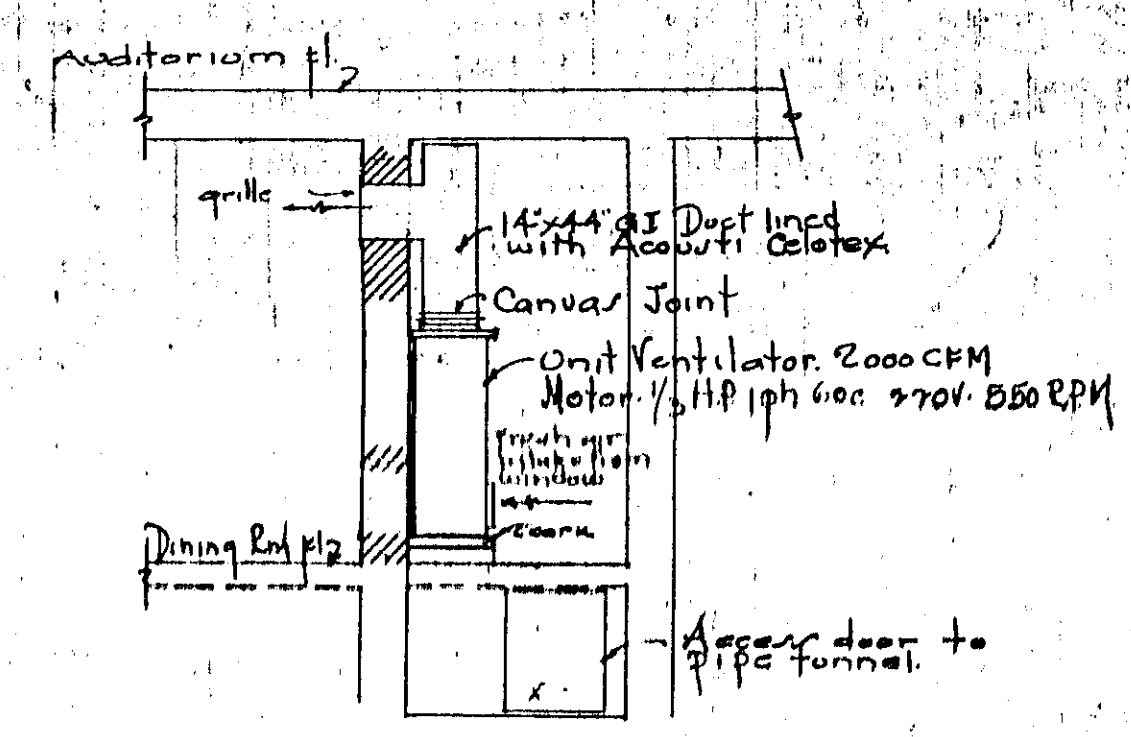 Auditorium fl.
grille
14"x44" GI Duct lined
with Acousti Celotex
Canvas Joint
Unit Ventilator. 2000 CFM
Motor. 1/3 H.P. 1ph 60c 220V. 550 R.P.M.
Fresh air
intake from
window
Dining Rm fl
Access door to
pipe tunnel.
x